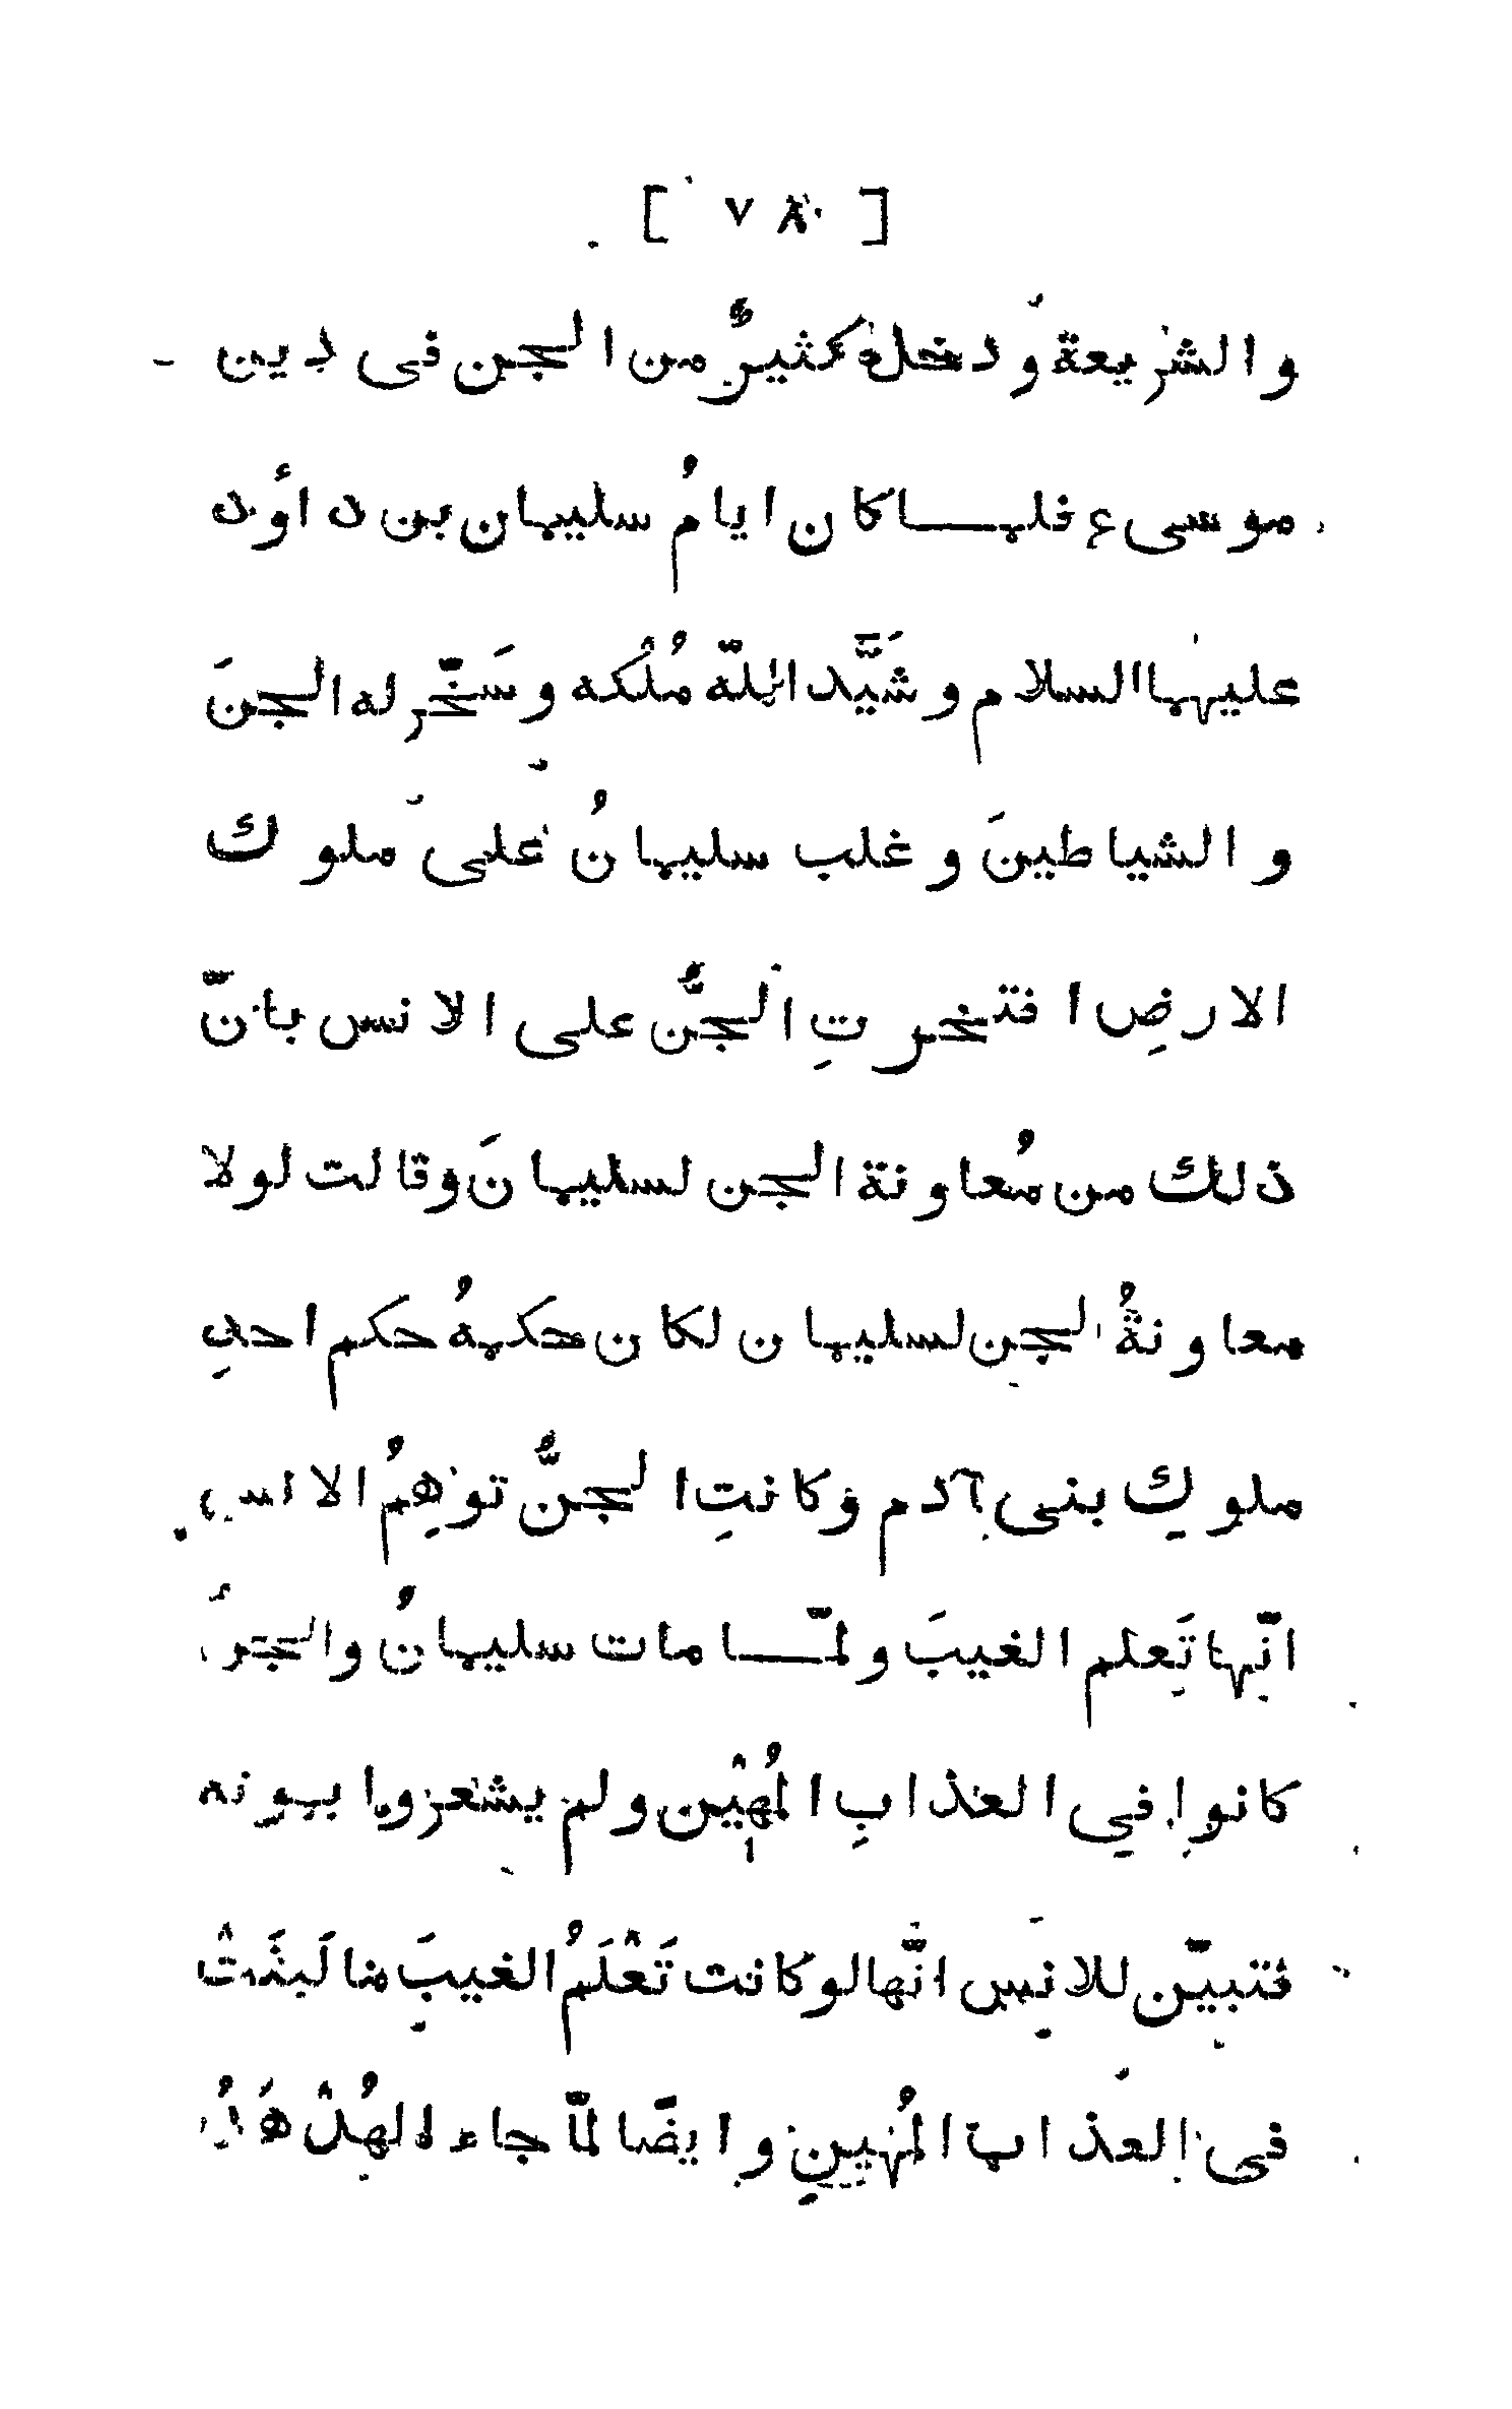 [ ٧٨ ]
والشريعة ودخل كثيرٌ من الجن فى دين
موسى ع فلما كان ايامُ سليمان بن داؤد
عليهما السلام وشَيَّد اللّه مُلْكه وسَخّر له الجنَ
والشياطينَ وغلب سليمانُ على ملوك
الارضِ افتخرتِ الجنُّ على الانس بانّ
ذلك من مُعاونة الجن لسليمانَ وقالت لولا
معاونةُ الجن لسليمان لكان حكمهُ حكم احدِ
ملوك بنى آدم وكانتِ الجنُّ توهِمُ الانس
انّها تَعلم الغيبَ ولمّا مات سليمانُ والجن
كانوا في العذابِ المُهيْن ولم يشعروا بموته
فتبيّن للانس انّها لو كانت تَعْلَمُ الغيبَ ما لَبثَتْ
فى العذاب المُهينِ وايضًا لمّا جاء الهُدْهَدُ